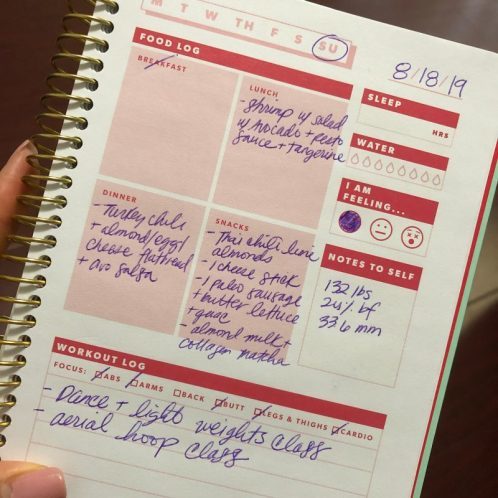 M T W TH F S SU
8/18/19
FOOD LOG
BREAKFAST
LUNCH
- Shrimp w/ salad
w/ Avocado + pesto
sauce + tangerine
SLEEP
HRS
WATER
I AM
FEELING...
DINNER
- Turkey chili
+ almond/egg/
cheese flatbread
+ avo salsa
SNACKS
- Thai chili lime
almonds
- 1 cheese stick
- 1 paleo sausage
+ butter lettuce
+ guac
- almond milk +
collagen matcha
NOTES TO SELF
132 lbs
24% bf
33.6 mm
WORKOUT LOG
FOCUS: ABS ARMS BACK BUTT LEGS & THIGHS CARDIO
- Dance + light weights class
- aerial hoop class